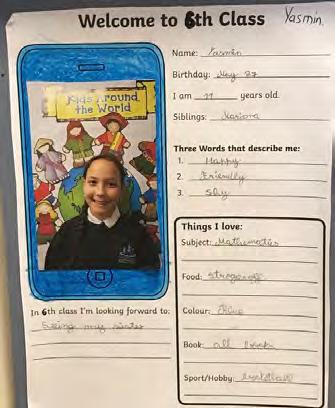 Welcome to 6th Class
Yasmin
Kids Around
the World
Name: Yasmin
Birthday: May 27
I am 11 years old.
Siblings:
Three Words that describe me:
1. Happy
2. Friendly
3. Shy
Things I love:
Subject: Mathematics
Food: stroganoff
Colour: Blue
Book: all books
Sport/Hobby: basketball
In 6th class I'm looking forward to:
Seeing my sister